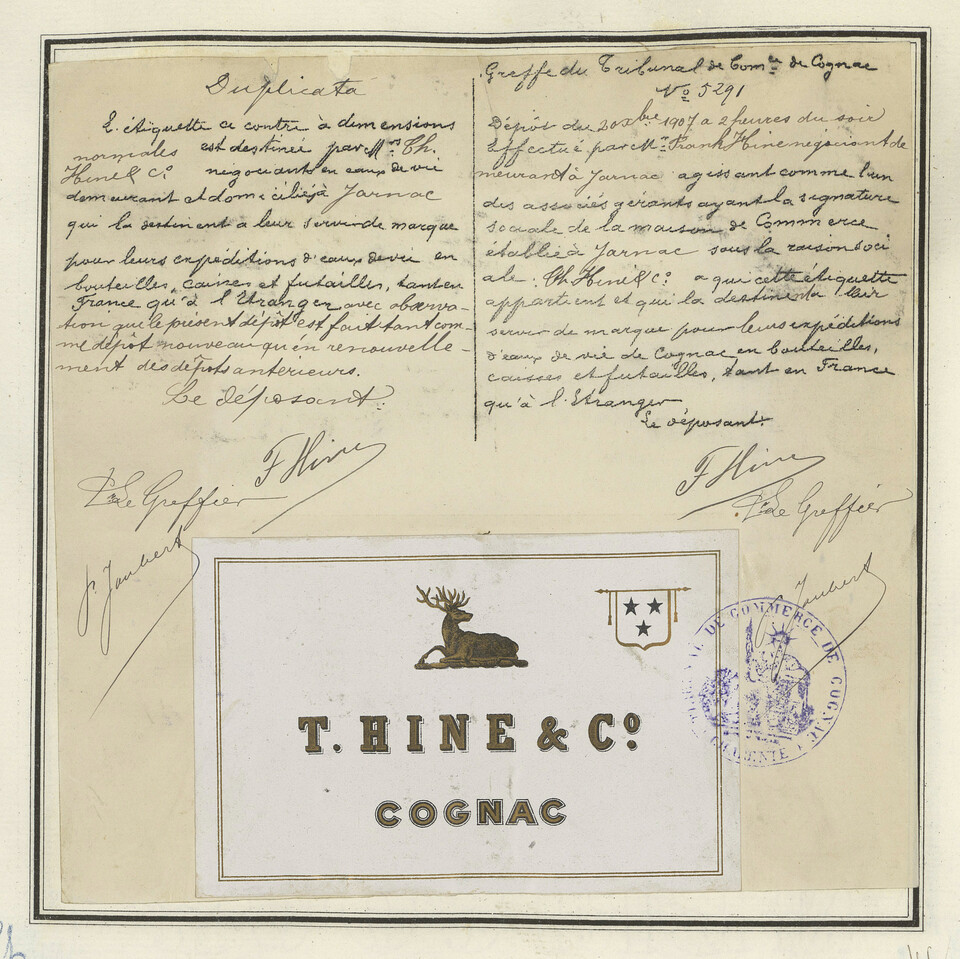 Duplicata
L'étiquette ci contre à dimensions
normales est destinée par Mrs Th.
Hine & Co négociants en eaux de vie
demeurant et domiciliés à Jarnac
qui la destinent a leur servir de marque
pour leurs expéditions d'eaux de vie en
bouteilles, caisses et futailles, tant en
France qu'à l'Etranger avec observa-
tion que le présent dépôt est fait tant com-
me dépôt nouveau qu'en renouvelle-
ment des dépôts antérieurs.
Le déposant:
F Hine
Pr Le Greffier
P. Joubert
Greffe du Tribunal de Comce de Cognac
No 5291
Dépôt du 20 Xbre 1907 a 2 heures du soir
Effectué par Mr Frank Hine négociant de
meurant à Jarnac agissant comme l'un
des associés gérants ayant la signature
sociale de la maison de Commerce
établie à Jarnac sous la raison soci
ale. Th Hine & Co a qui cette étiquette
appartient et qui la destine à leur
servir de marque pour leurs expéditions
d'eaux de vie de Cognac en bouteilles,
caisses et futailles, tant en France
qu'à l'Etranger
Le déposant:
F Hine
Pr Le Greffier
Joubert
T. HINE & Co.
COGNAC
TRIBUNAL DE COMMERCE DE COGNAC
CHARENTE